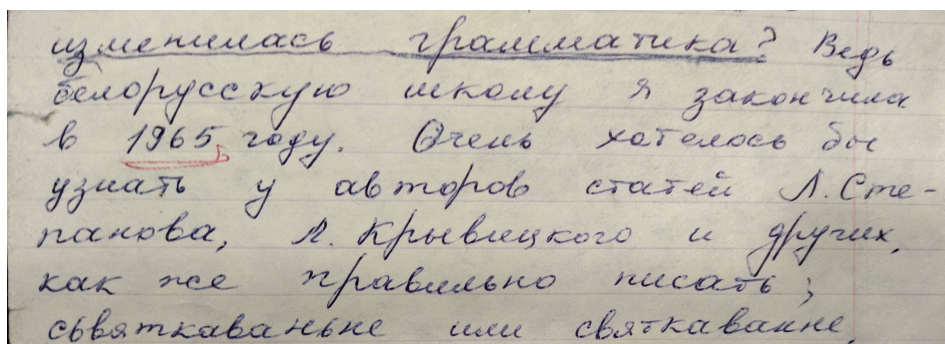 изменилась грамматика? Ведь
белорусскую школу я закончила
в 1965 году. Очень хотелось бы
узнать у авторов статей Л. Сте-
панова, Л. Крывицкого и других,
как же правильно писать;
сьвяткаваньне или святкаванне,